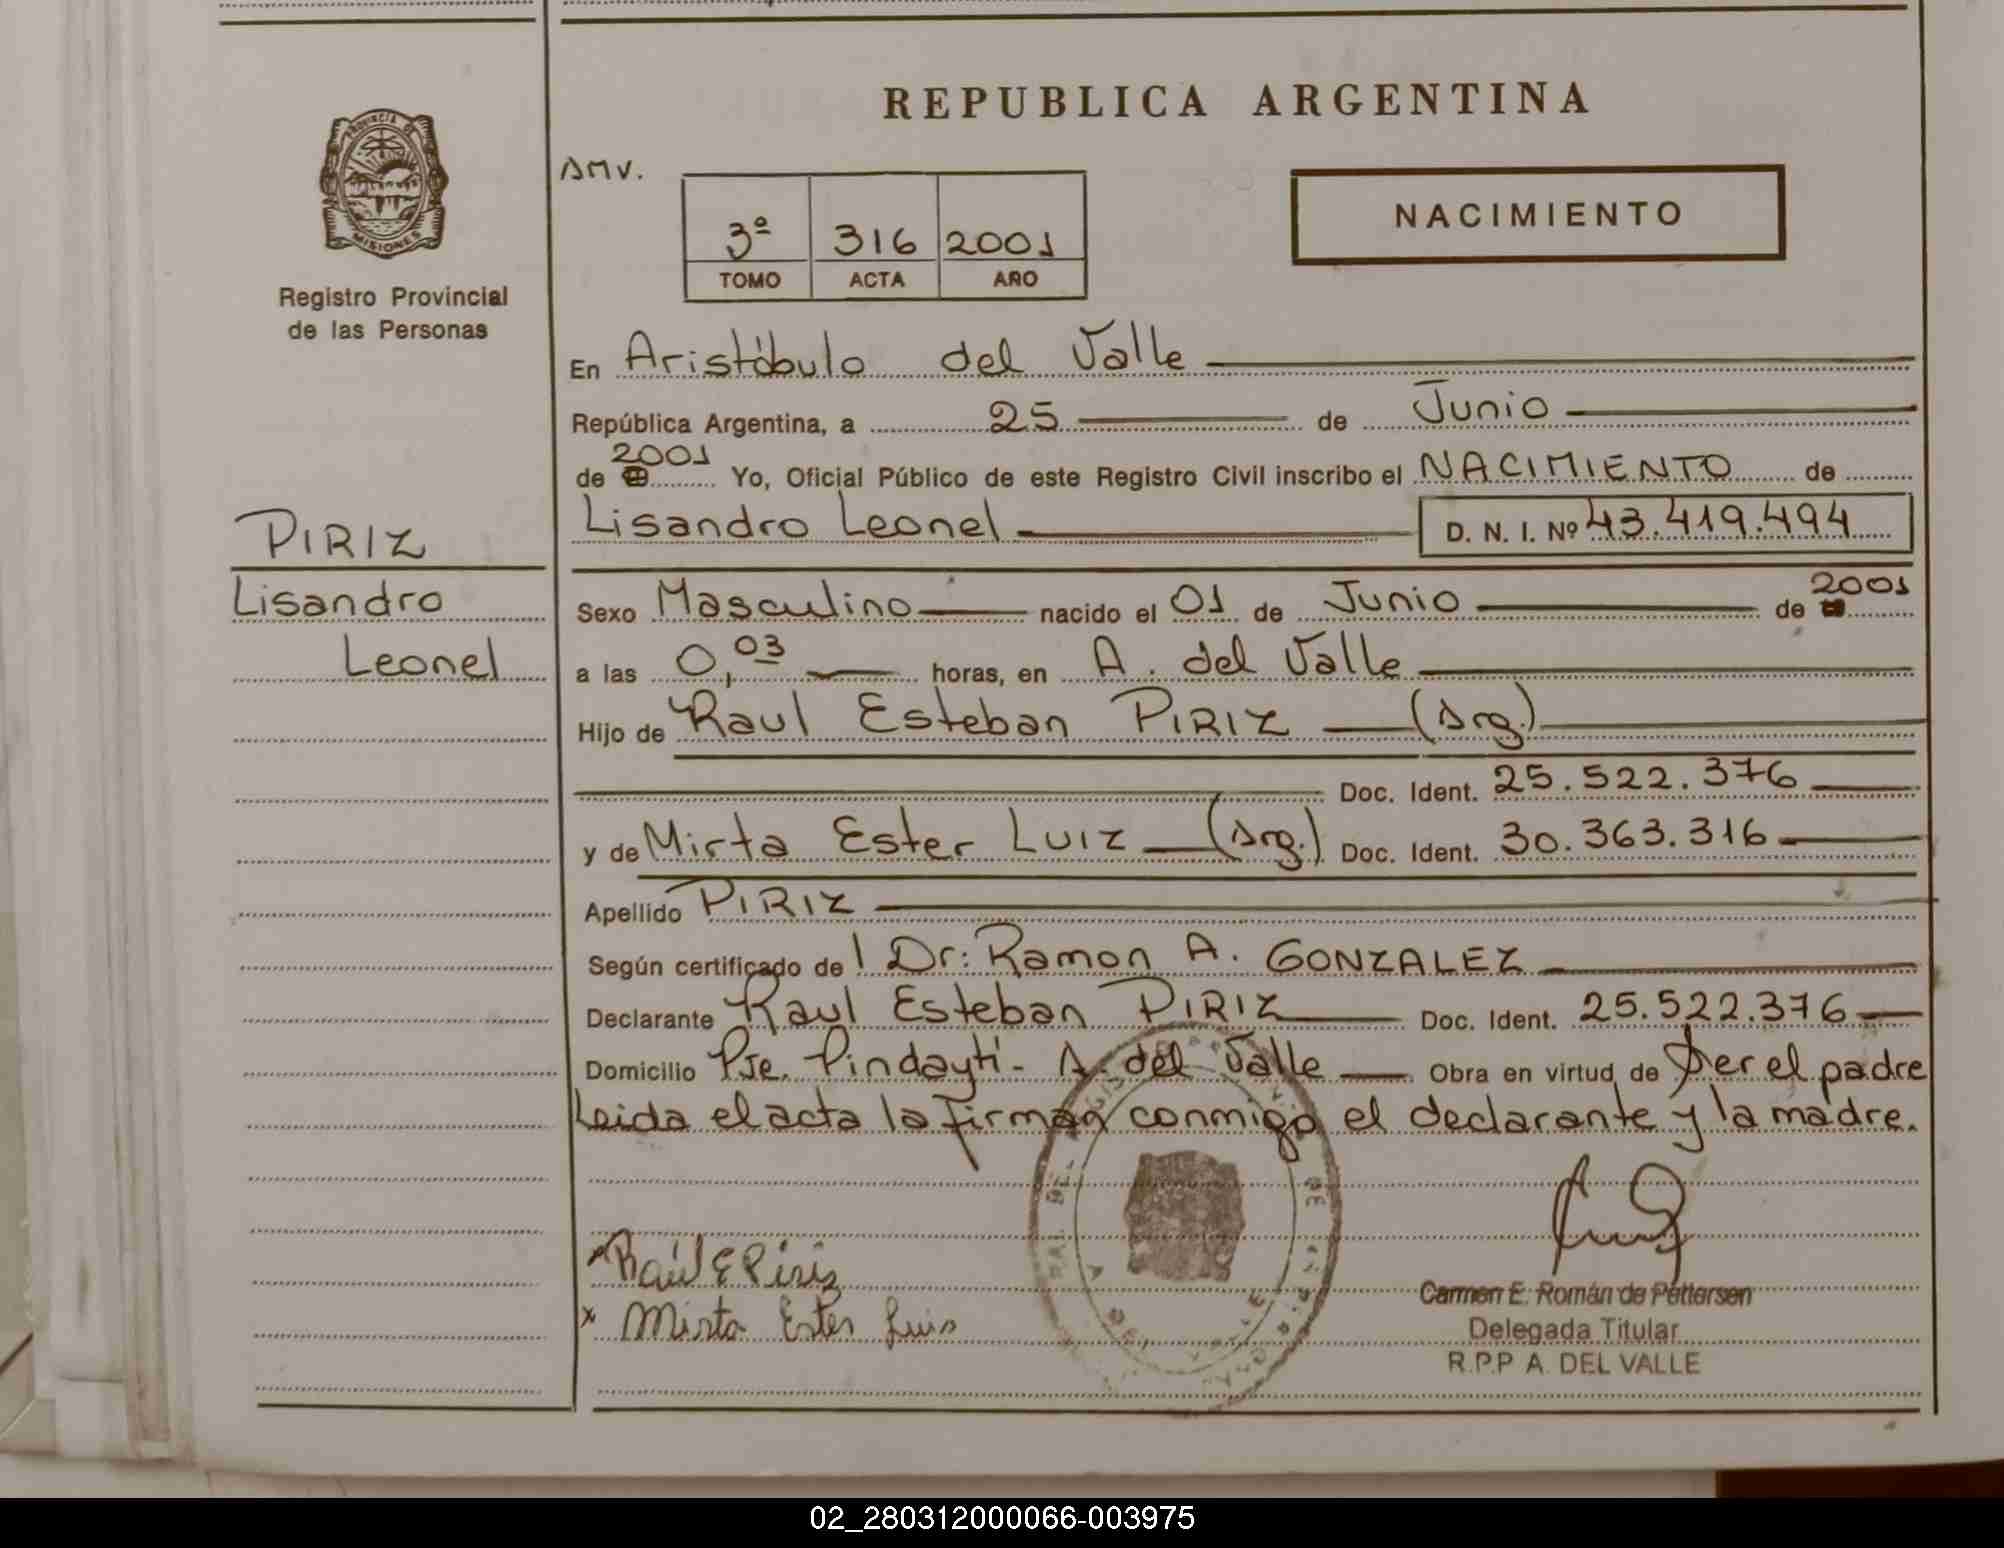 REPUBLICA ARGENTINA
PROVINCIA DE
MISIONES
Registro Provincial
de las Personas
AMV.
3ª 316 2001
TOMO ACTA AÑO
NACIMIENTO
En Aristóbulo del Valle
República Argentina, a 25 de Junio
de 2001 Yo, Oficial Público de este Registro Civil inscribo el NACIMIENTO de
Lisandro Leonel D. N. I. Nº 43.419.494
PIRIZ
Lisandro
Leonel
Sexo Masculino nacido el 01 de Junio de 2001
a las 0,03 horas, en A. del Valle
Hijo de Raul Esteban PIRIZ (Arg.)
Doc. Ident. 25.522.376
y de Mirta Ester LUIZ (Arg.) Doc. Ident. 30.363.316
Apellido PIRIZ
Según certificado de l Dr: Ramon A. GONZALEZ
Declarante Raul Esteban PIRIZ Doc. Ident. 25.522.376
Domicilio Pje. Pindaytí - A. del Valle Obra en virtud de Ser el padre
Leida el acta la firman conmigo el declarante y la madre.
Raúl E Piris
x Mirta Ester Luis
Carmen E. Román de Pettersen
Delegada Titular
R.P.P A. DEL VALLE
02_280312000066-003975